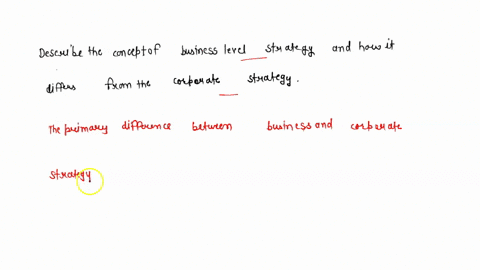 Describe the concept of business level strategy and how it
differs from the corporate strategy.
The primary difference between business and corporate
strategy